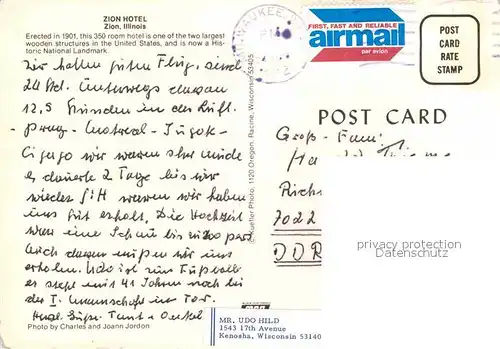 ZION HOTEL
Zion, Illinois
Erected in 1901, this 350 room hotel is one of the two largest
wooden structures in the United States, and is now a His-
toric National Landmark.
Wir hatten guten Flug, sind
24 Std. Unterwegs davon
12,5 Stunden in der Luft.
- Prag - Montreal -
wir waren sehr müde
es dauerte 2 Tage bis wir
wieder fit waren wir haben
uns gut erholt. Die Hochzeit
war eine Schau bis zu 200 pers.
Auch davon mußten wir uns
erholen. Udo ist zum Fußball
er steht mit 41 Jahren noch bei
der I. Mannschaft im Tor.
Tante + Onkel
Photo by Charles and Joann Jordon
1120 Oregon, Racine, Wisconsin 53405
FIRST, FAST AND RELIABLE
airmail
par avion
POST
CARD
RATE
STAMP
POST CARD
Groß-
7022
DDR
privacy protection
Datenschutz
MR. UDO HILD
1543 17th Avenue
Kenosha, Wisconsin 53140